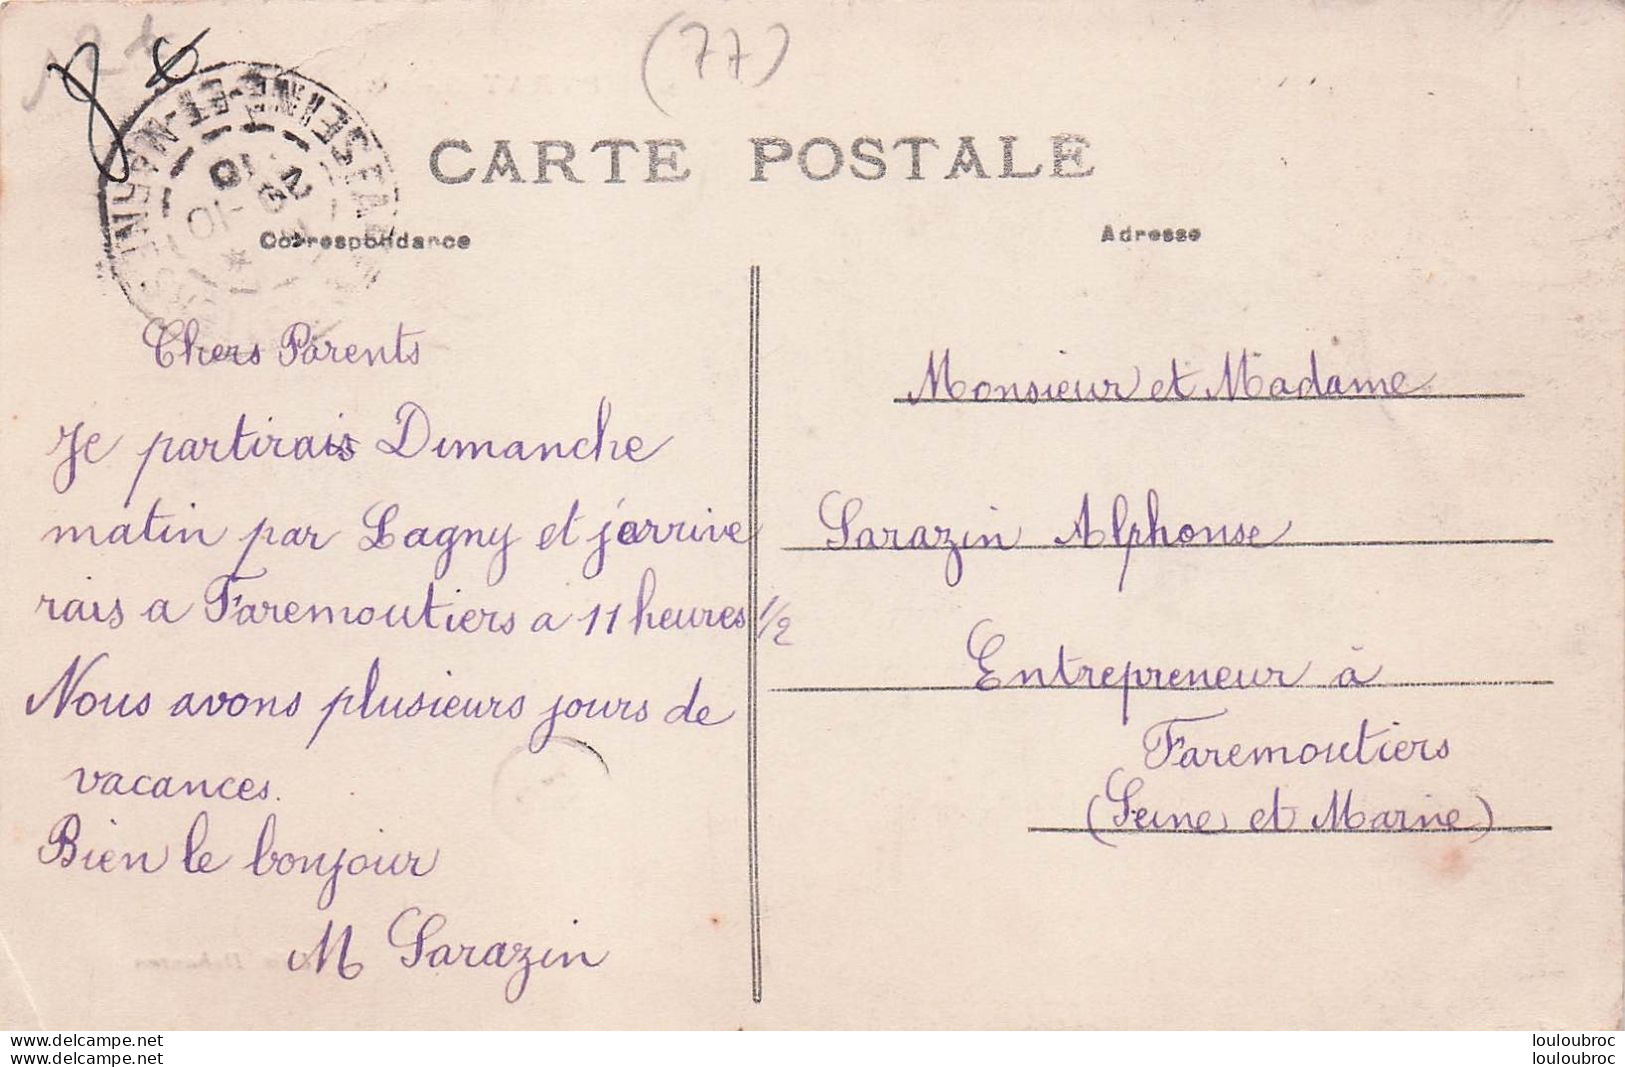 (77)
8 €
SEINE-ET-MARNE
CARTE POSTALE
Correspondance
Adresse
Chers Parents
Je partirais Dimanche
matin par Lagny et j'arrive
rais a Faremoutiers a 11 heures 1/2
Nous avons plusieurs jours de
vacances.
Bien le bonjour
M Sarazin
Monsieur et Madame
Sarazin Alphonse
Entrepreneur à
Faremoutiers
(Seine et Marne)
www.delcampe.net
www.delcampe.net
louloubroc
louloubroc